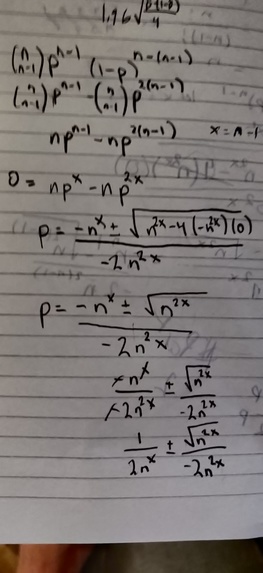 1.96√(p(1-p)/4)
(n n-1) p^(n-1) (1-p)^(n-(n-1))
(n n-1) p^(n-1) - (n n-1) p^(2(n-1))
np^(n-1) - np^(2(n-1)) x = n-1
0 = np^x - np^(2x)
p = (-n^x ± √(n^(2x) - 4(-n^(2x))(0))) / (-2n^(2x))
p = (-n^x ± √(n^(2x))) / (-2n^(2x))
(-n^x)/(-2n^(2x)) ± √(n^(2x))/(-2n^(2x))
1/(2n^x) ± √(n^(2x))/(-2n^(2x))